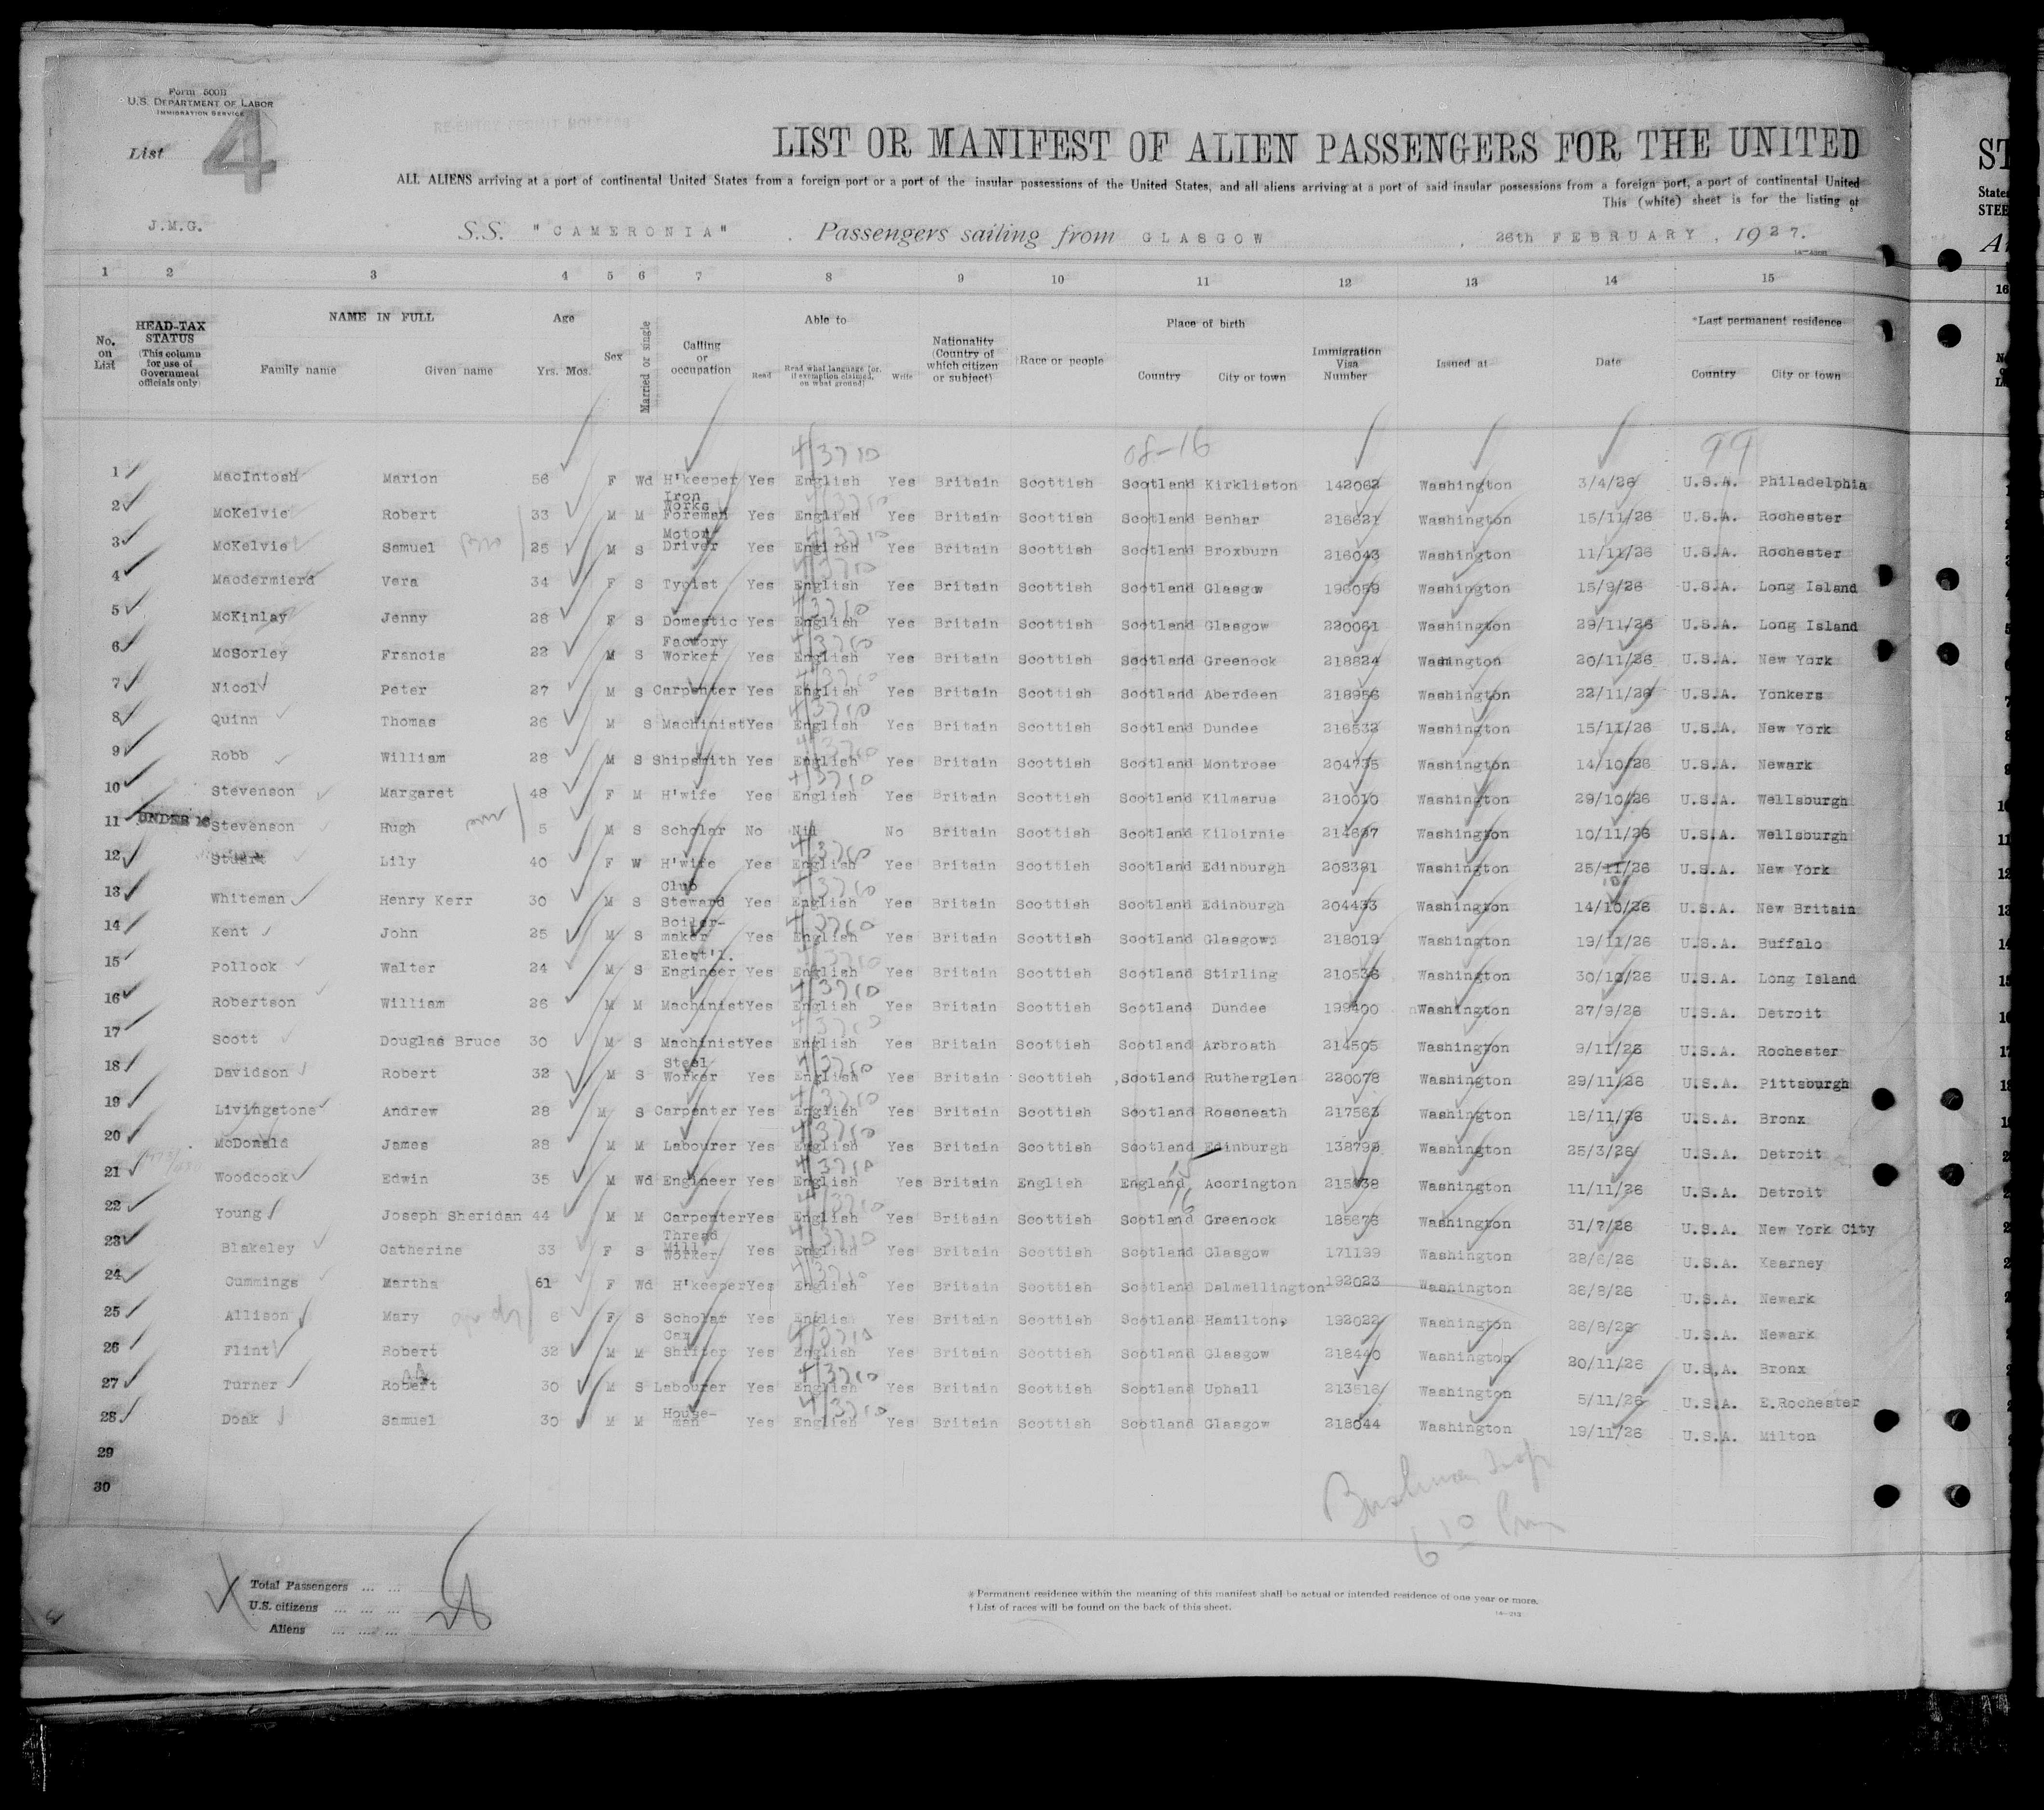 Form 500B
U.S. DEPARTMENT OF LABOR
IMMIGRATION SERVICE
List 4
RE-ENTRY PERMIT HOLDERS
LIST OR MANIFEST OF ALIEN PASSENGERS FOR THE UNITED
ALL ALIENS arriving at a port of continental United States from a foreign port or a port of the insular possessions of the United States, and all aliens arriving at a port of said insular possessions from a foreign port, a port of continental United
This (white) sheet is for the listing of
J.M.G.
S.S. "CAMERONIA" . Passengers sailing from GLASGOW , 26th FEBRUARY , 1927.
1 2 3 4 5 6 7 8 9 10 11 12 13 14 15
No. on List
HEAD-TAX STATUS (This column for use of Government officials only)
NAME IN FULL Family name Given name
Age Yrs. Mos.
Sex
Married or single
Calling or occupation
Able to Read Read what language (or, if exemption claimed, on what ground) Write
Nationality (Country of which citizen or subject)
Race or people
Place of birth Country City or town
Immigration Visa Number
Issued at
Date
*Last permanent residence Country City or town
4/3710 08-16 99
1 MacIntosh Marion 56 F Wd H'keeper Yes English Yes Britain Scottish Scotland Kirkliston 142062 Washington 3/4/26 U.S.A. Philadelphia
2 McKelvie Robert 33 M M Iron Works Foreman Yes English Yes Britain Scottish Scotland Benhar 216621 Washington 15/11/26 U.S.A. Rochester
3 McKelvie Samuel 25 M S Motor Driver Yes English Yes Britain Scottish Scotland Broxburn 216043 Washington 11/11/26 U.S.A. Rochester
4 Macdermierd Vera 34 F S Typist Yes English Yes Britain Scottish Scotland Glasgow 196059 Washington 15/9/26 U.S.A. Long Island
5 McKinlay Jenny 28 F S Domestic Yes English Yes Britain Scottish Scotland Glasgow 220061 Washington 29/11/26 U.S.A. Long Island
6 McSorley Francis 22 M S Factory Worker Yes English Yes Britain Scottish Scotland Greenock 218824 Washington 20/11/26 U.S.A. New York
7 Nicol Peter 27 M S Carpenter Yes English Yes Britain Scottish Scotland Aberdeen 218956 Washington 22/11/26 U.S.A. Yonkers
8 Quinn Thomas 26 M S Machinist Yes English Yes Britain Scottish Scotland Dundee 216532 Washington 15/11/26 U.S.A. New York
9 Robb William 28 M S Shipsmith Yes English Yes Britain Scottish Scotland Montrose 204735 Washington 14/10/26 U.S.A. Newark
10 Stevenson Margaret 48 F M H'wife Yes English Yes Britain Scottish Scotland Kilmarus 210010 Washington 29/10/26 U.S.A. Wellsburgh
11 UNDER 16 Stevenson Hugh 5 M S Scholar No Nil No Britain Scottish Scotland Kilbirnie 214697 Washington 10/11/26 U.S.A. Wellsburgh
12 Stuart Lily 40 F W H'wife Yes English Yes Britain Scottish Scotland Edinburgh 208381 Washington 25/11/26 U.S.A. New York
13 Whiteman Henry Kerr 30 M S Club Steward Yes English Yes Britain Scottish Scotland Edinburgh 204433 Washington 14/10/26 U.S.A. New Britain
14 Kent John 25 M S Boiler-maker Yes English Yes Britain Scottish Scotland Glasgow 218019 Washington 19/11/26 U.S.A. Buffalo
15 Pollock Walter 24 M S Elect'l. Engineer Yes English Yes Britain Scottish Scotland Stirling 210536 Washington 30/10/26 U.S.A. Long Island
16 Robertson William 26 M M Machinist Yes English Yes Britain Scottish Scotland Dundee 199400 Washington 27/9/26 U.S.A. Detroit
17 Scott Douglas Bruce 30 M S Machinist Yes English Yes Britain Scottish Scotland Arbroath 214505 Washington 9/11/26 U.S.A. Rochester
18 Davidson Robert 32 M S Steel Worker Yes English Yes Britain Scottish Scotland Rutherglen 220078 Washington 29/11/26 U.S.A. Pittsburgh
19 Livingstone Andrew 28 M S Carpenter Yes English Yes Britain Scottish Scotland Roseneath 217563 Washington 18/11/26 U.S.A. Bronx
20 McDonald James 28 M M Labourer Yes English Yes Britain Scottish Scotland Edinburgh 138799 Washington 25/3/26 U.S.A. Detroit
21 Woodcock Edwin 35 M Wd Engineer Yes English Yes Britain English England Accrington 215838 Washington 11/11/26 U.S.A. Detroit
22 Young Joseph Sheridan 44 M M Carpenter Yes English Yes Britain Scottish Scotland Greenock 185678 Washington 31/7/26 U.S.A. New York City
23 Blakeley Catherine 33 F S Thread Mill Worker Yes English Yes Britain Scottish Scotland Glasgow 171199 Washington 28/6/26 U.S.A. Kearney
24 Cummings Martha 61 F Wd H'keeper Yes English Yes Britain Scottish Scotland Dalmellington 192023 Washington 26/8/26 U.S.A. Newark
25 Allison Mary 6 F S Scholar Yes English Yes Britain Scottish Scotland Hamilton, 192022 Washington 26/8/26 U.S.A. Newark
26 Flint Robert 32 M M Car Shifter Yes English Yes Britain Scottish Scotland Glasgow 218440 Washington 20/11/26 U.S.A. Bronx
27 Turner Robert 30 M S Labourer Yes English Yes Britain Scottish Scotland Uphall 213516 Washington 5/11/26 U.S.A. E.Rochester
28 Doak Samuel 30 M M House-man Yes English Yes Britain Scottish Scotland Glasgow 218044 Washington 19/11/26 U.S.A. Milton
29
30
6 10 Pm
Total Passengers ... ...
U.S. citizens ... ... ...
Aliens ... ... ...
* Permanent residence within the meaning of this manifest shall be actual or intended residence of one year or more.
† List of races will be found on the back of this sheet.